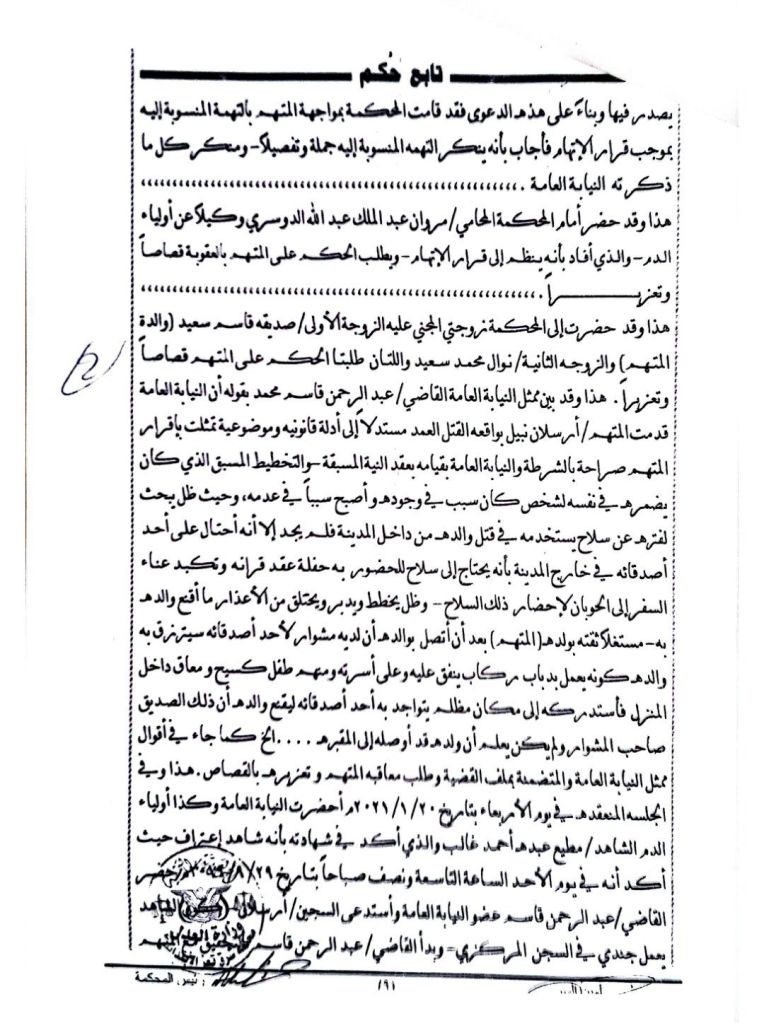 تابع حكم
يصدر فيها وبناءً على هذه الدعوى فقد قامت المحكمة بمواجهة المتهم بالتهمة المنسوبة إليه
بموجب قرار الإتهام فأجاب بأنه ينكر التهمه المنسوبة إليه جملة وتفصيلاً - ومنكر كل ما
ذكرته النيابة العامة .،،،،،،،،،،،،،،،،،،،،،،،،،،،،،،،،،،،،،،،،،،،،،،،،،،،،،،،،
هذا وقد حضر أمام المحكمة المحامي/مروان عبد الملك عبد الله الدوسري وكيلاً عن أولياء
الدم - والذي أفاد بأنه ينظم إلى قرار الإتهام - ويطلب الحكم على المتهم بالعقوبة قصاصاً
وتعزيـــــــــراً .،،،،،،،،،،،،،،،،،،،،،،،،،،،،،،،،،،،،،،،،،،،،،،،،،،،،،،،،
هذا وقد حضرت إلى المحكمة زوجتي المجني عليه الزوجة الأولى/صديقه قاسم سعيد (والدة
المتهم) والزوجه الثانية/نوال محمد سعيد واللتان طلبتا الحكم على المتهم قصاصاً
وتعزيراً . هذا وقد بين ممثل النيابة العامة القاضي/عبد الرحمن قاسم محمد بقوله أن النيابة العامة
قدمت المتهم/أرسلان نبيل بواقعه القتل العمد مستدلاً إلى أدلة قانونيه وموضوعية تمثلت بإقرار
المتهم صراحة بالشرطة والنيابة العامة بقيامه بعقد النية المسبقة - والتخطيط المسبق الذي كان
يضمره في نفسه لشخص كان سبب في وجوده وأصبح سبباً في عدمه، وحيث ظل يبحث
لفتره عن سلاح يستخدمه في قتل والده من داخل المدينة فلم يجد إلا أنه أحتال على أحد
أصدقائه في خارج المدينة بأنه يحتاج إلى سلاح للحضور به حفلة عقد قرانه وتكبد عناء
السفر إلى الحوبان لإحضار ذلك السلاح - وظل يخطط ويدبر ويختلق من الأعذار ما أقنع والده
به - مستغلاً ثقته بولده (المتهم) بعد أن أتصل بوالده أن لديه مشوار لأحد أصدقائه سيترزق به
والده كونه يعمل بدباب ركاب ينفق عليه وعلى أسرته ومنهم طفل كسيح ومعاق داخل
المنزل فأستدركه إلى مكان مظلم يتواجد به أحد أصدقائه ليقنع والده أن ذلك الصديق
صاحب المشوار ولم يكن يعلم أن ولده قد أوصله إلى المقبره ....الخ كما جاء في أقوال
ممثل النيابة العامة والمتضمنة بملف القضية وطلب معاقبه المتهم وتعزيره بالقصاص . هذا وفي
الجلسه المنعقده في يوم الأربعاء بتاريخ ٢٠٢١/١/٢٠م أحضرت النيابة العامة وكذا أولياء
الدم الشاهد/مطيع عبده أحمد غالب والذي أكد في شهادته بأنه شاهد إعتراف حيث
أكد أنه في يوم الأحد الساعة التاسعة ونصف صباحاً بتاريخ ٨/٢٩/ حضر
القاضي/عبد الرحمن قاسم عضو النيابة العامة وأستدعى السجين/أرسلان الشاهد
يعمل جندي في السجن المركزي - وبدأ القاضي/عبد الرحمن قاسم المتهم
رئيس المحكمة